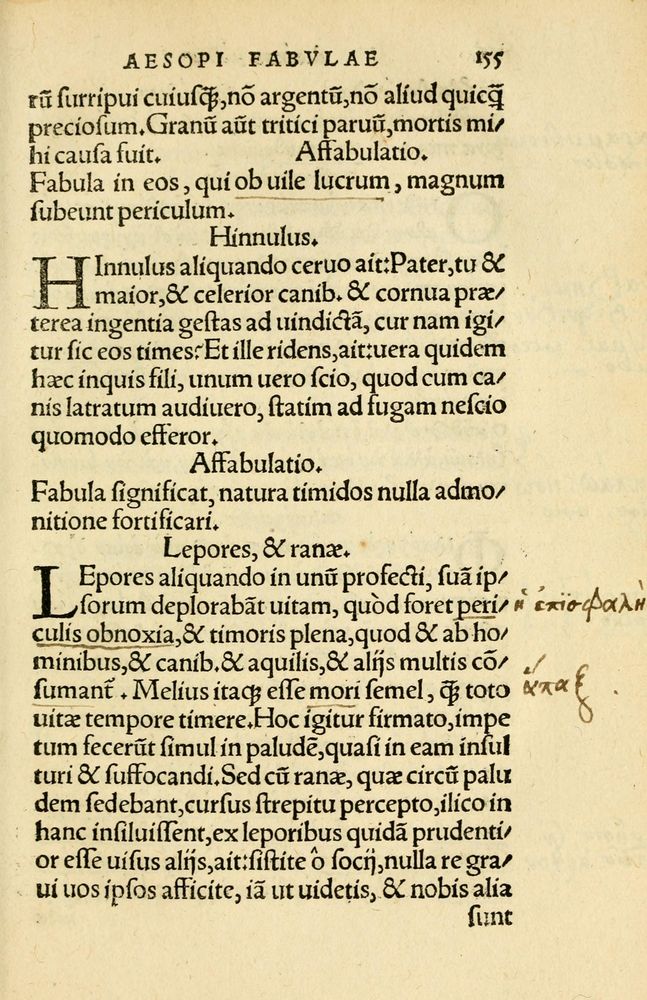 AESOPI FABVLAE 155
rũ ſurripui cuiuſꝗ̃,nõ argentũ,nõ aliud quicꝗ̃
precioſum.Granũ aũt tritici paruũ,mortis mi/
hi cauſa fuit. Affabulatio.
Fabula in eos, qui ob uile lucrum, magnum
ſubeunt periculum.
Hinnulus.
HInnulus aliquando ceruo ait:Pater,tu &
maior,& celerior canib. & cornua præ/
terea ingentia geſtas ad uindictã, cur nam igi/
tur ſic eos times? Et ille ridens,ait:uera quidem
hæc inquis fili, unum uero ſcio, quod cum ca/
nis latratum audiuero, ſtatim ad fugam neſcio
quomodo efferor.
Affabulatio.
Fabula ſignificat, natura timidos nulla admo/
nitione fortificari.
Lepores, & ranæ.
LEpores aliquando in unũ profecti, ſuã ip/
ſorum deplorabãt uitam, quòd foret peri/ ἡ ἐπισφαλὴ
culis obnoxia,& timoris plena,quod & ab ho/
minibus,& canib.& aquilis,& alijs multis cõ/
ſumant̃. Melius itaꝗ eſſe mori ſemel, ꝗ̃ toto ἅπαξ
uitæ tempore timere.Hoc igitur firmato,impe
tum fecerũt ſimul in paludẽ,quaſi in eam inſul
turi & ſuffocandi.Sed cũ ranæ, quæ circũ palu
dem ſedebant,curſus ſtrepitu percepto,ilico in
hanc inſiluiſſent,ex leporibus quidã prudenti/
or eſſe uiſus alijs,ait:ſiſtite ô ſocij,nulla re gra/
ui uos ipſos afficite, iã ut uidetis, & nobis alia
ſunt